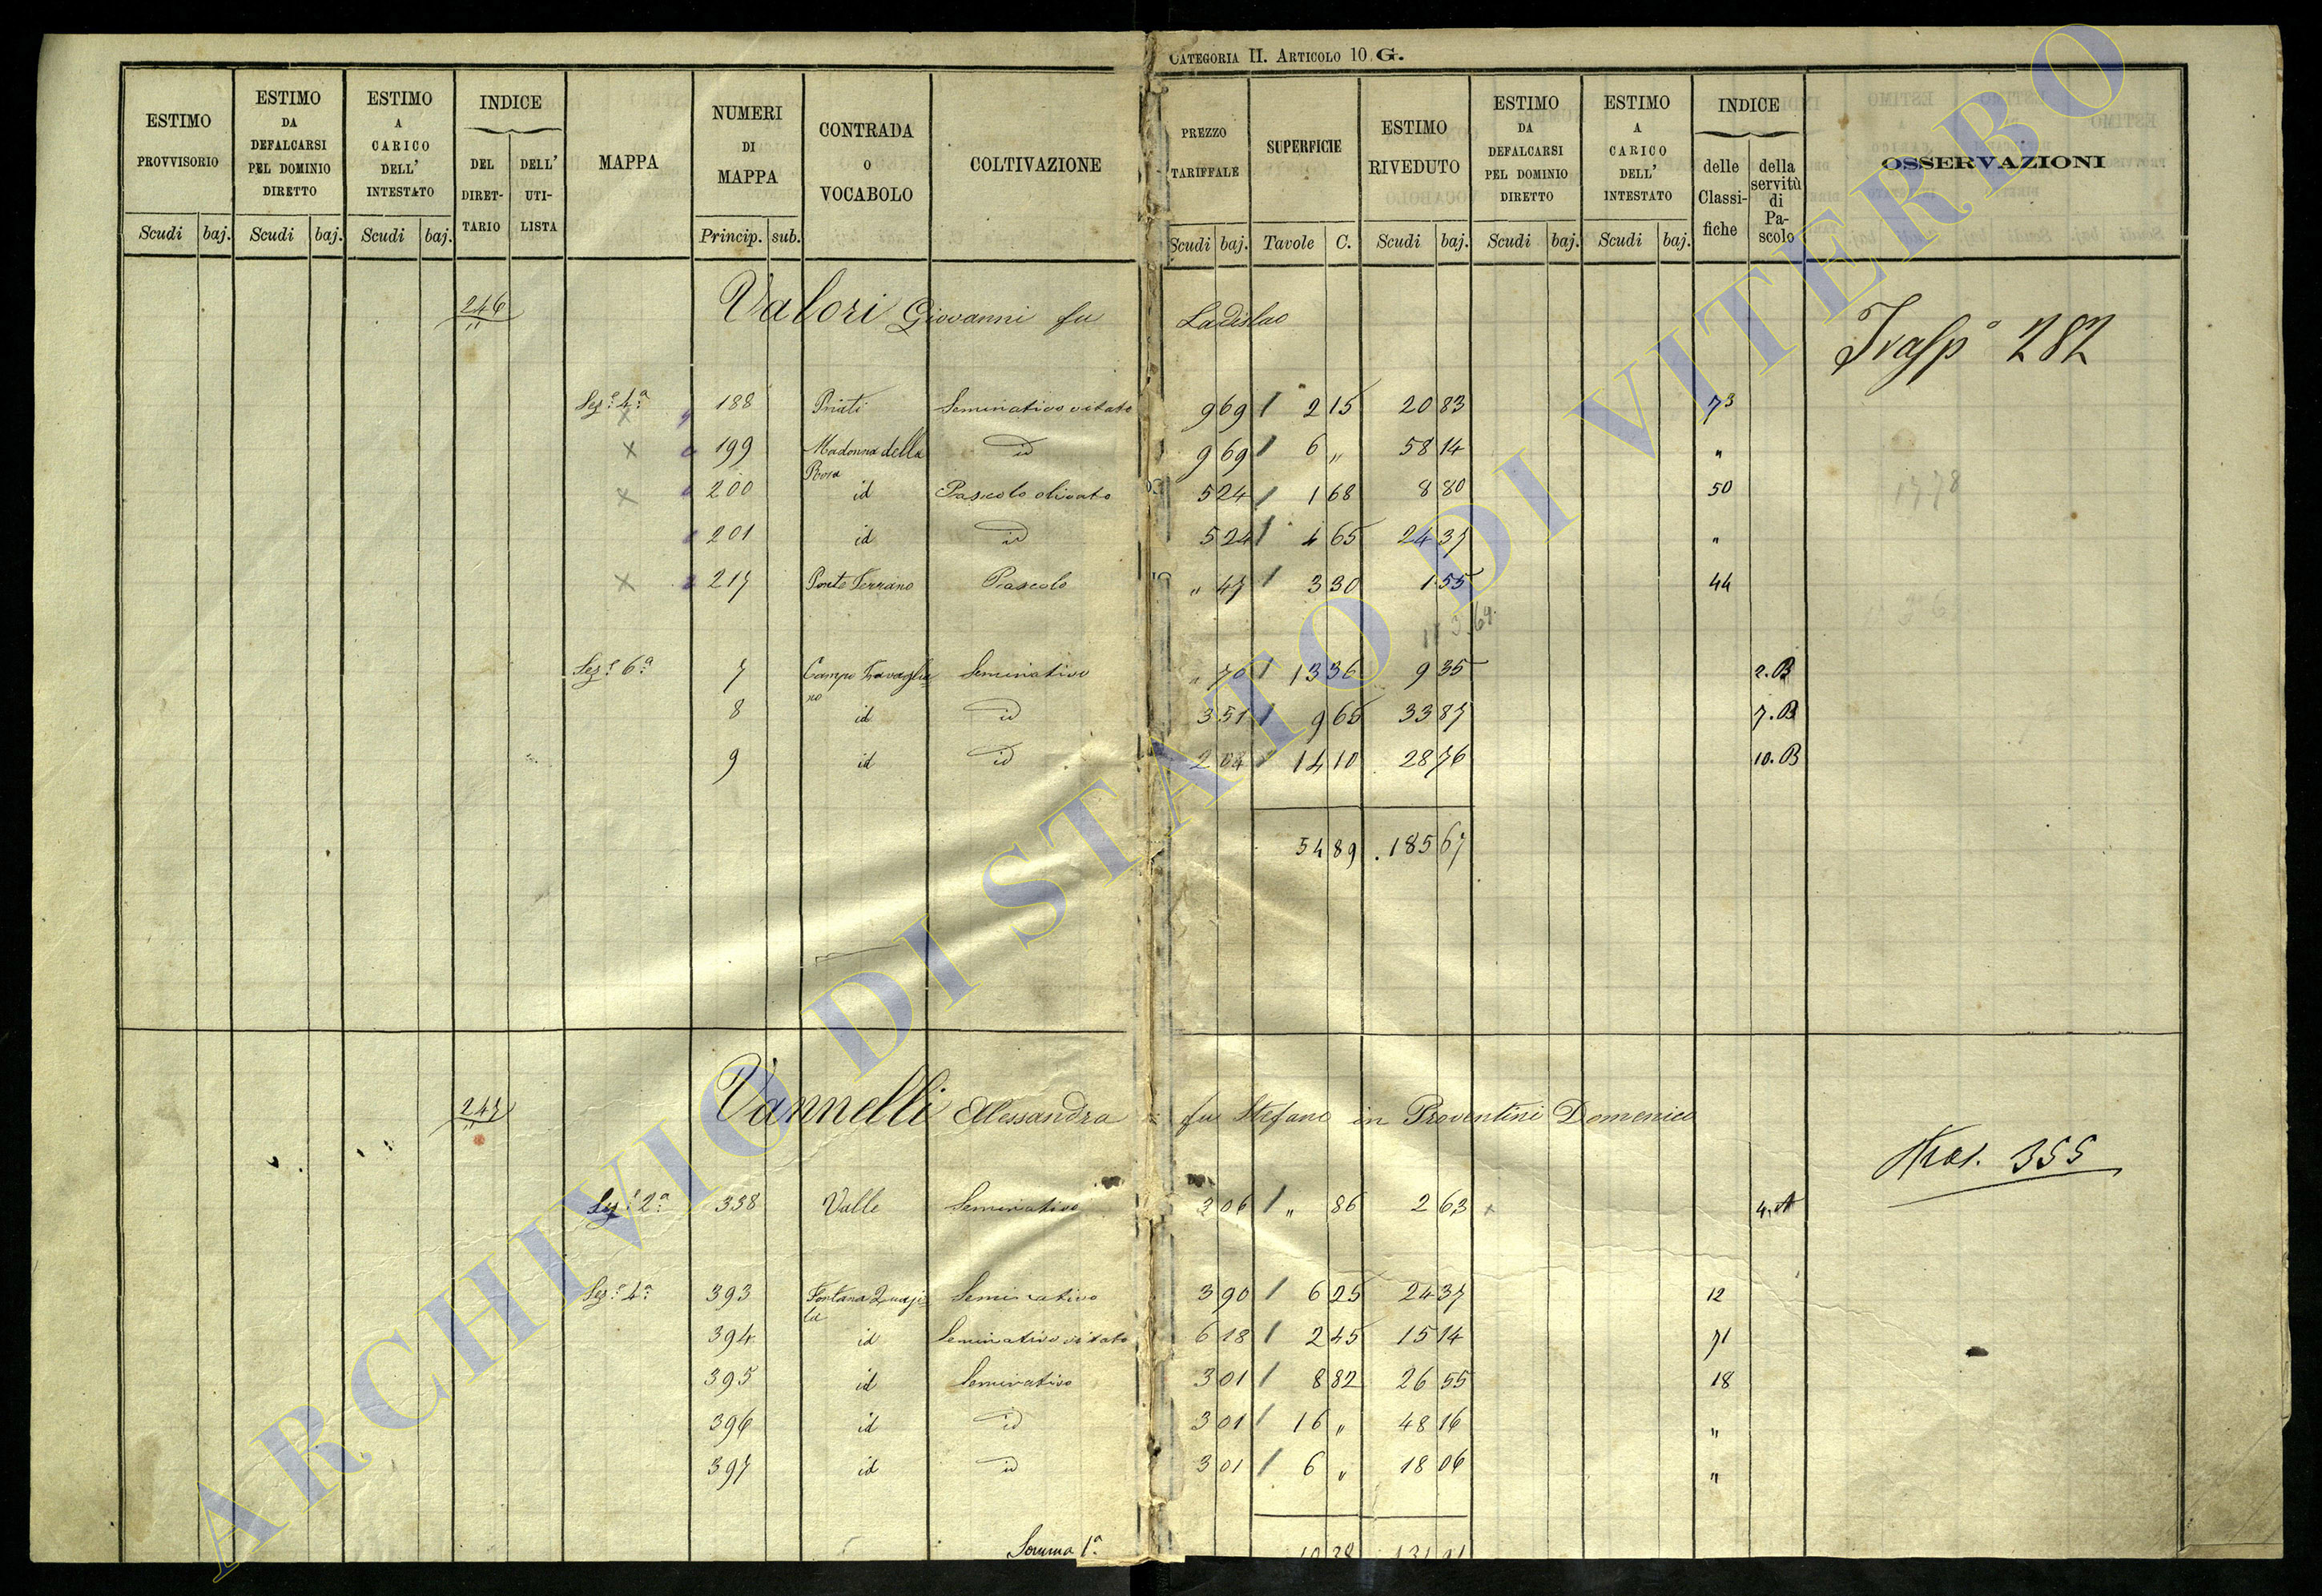 CATEGORIA II. ARTICOLO 10 G.
ESTIMO PROVVISORIO Scudi baj.
ESTIMO DA DEFALCARSI PEL DOMINIO DIRETTO Scudi baj.
ESTIMO A CARICO DELL' INTESTATO Scudi baj.
INDICE DEL DIRET-TARIO DELL' UTI-LISTA
MAPPA
NUMERI DI MAPPA Princip. sub.
CONTRADA O VOCABOLO
COLTIVAZIONE
PREZZO TARIFFALE Scudi baj.
SUPERFICIE Tavole C.
ESTIMO RIVEDUTO Scudi baj.
ESTIMO DA DEFALCARSI PEL DOMINIO DIRETTO Scudi baj.
ESTIMO A CARICO DELL' INTESTATO Scudi baj.
INDICE delle Classi-fiche della servitù di Pa-scolo
OSSERVAZIONI
246 Valori Giovanni fu Ladislao
Trasp° 282
Sez.e 4.a 188 Priati Seminativo vitato 9 69 2 15 20 83 73
199 Madonna della Rosa id 9 69 6 " 58 14 "
200 id Pascolo olivato 5 24 1 68 8 80 50
201 id id 5 24 4 65 24 37 "
217 Ponte Terrano Pascolo " 47 3 30 1 55 44
1778
Sez.e 6.a 7 Campo Travaglia=no Seminativo " 70 13 36 9 35 2.B
8 id id 3 51 9 65 33 87 7.B
9 id id 2 04 14 10 28 76 10.B
54 89 185 67
247 Vannelli Alessandra = fu Stefano in Proventini Domenico
Tras. 355
Sez.e 2.a 338 Valle Seminativo 3 06 " 86 2 63 4.A
Sez.e 4.a 393 Seminativo 3 90 6 25 24 37 12
394 id Seminativo vitato 6 18 2 45 15 14 71
395 id Seminativo 3 01 8 82 26 55 18
396 id id 3 01 16 " 48 16 "
397 id id 3 01 6 " 18 06 "
Somma 1.a
ARCHIVIO DI STATO DI VITERBO